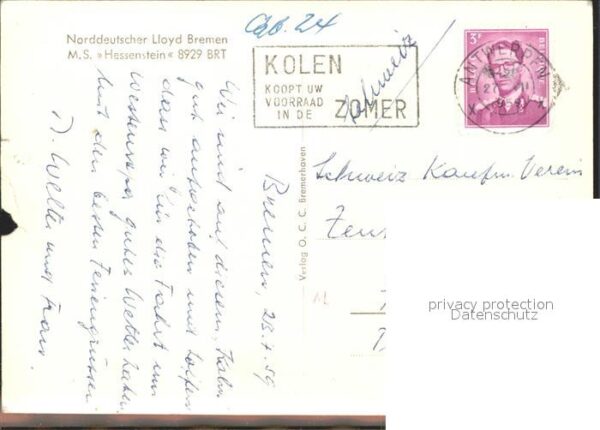 Norddeutscher Lloyd Bremen
M.S. »Hessenstein« 8929 BRT
Cab. 24
KOLEN
KOOPT UW
VOORRAAD
IN DE ZOMER
Schweiz
ANTWERPEN
3F
Bremen, 28.7.59
Wir sind auf diesem Kahn
gut aufgehoben und hoffen
dass wir für die Fahrt um
Westeuropa gutes Wetter haben.
Mit den besten Feriengrüssen
D. Welti und Frau.
Verlag O. C. C. Bremerhaven
Schweiz Kaufm. Verein
privacy protection
Datenschutz